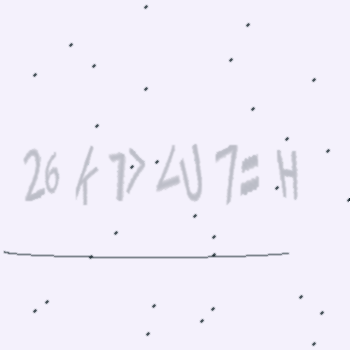 26 k 7> ∠U 7= H